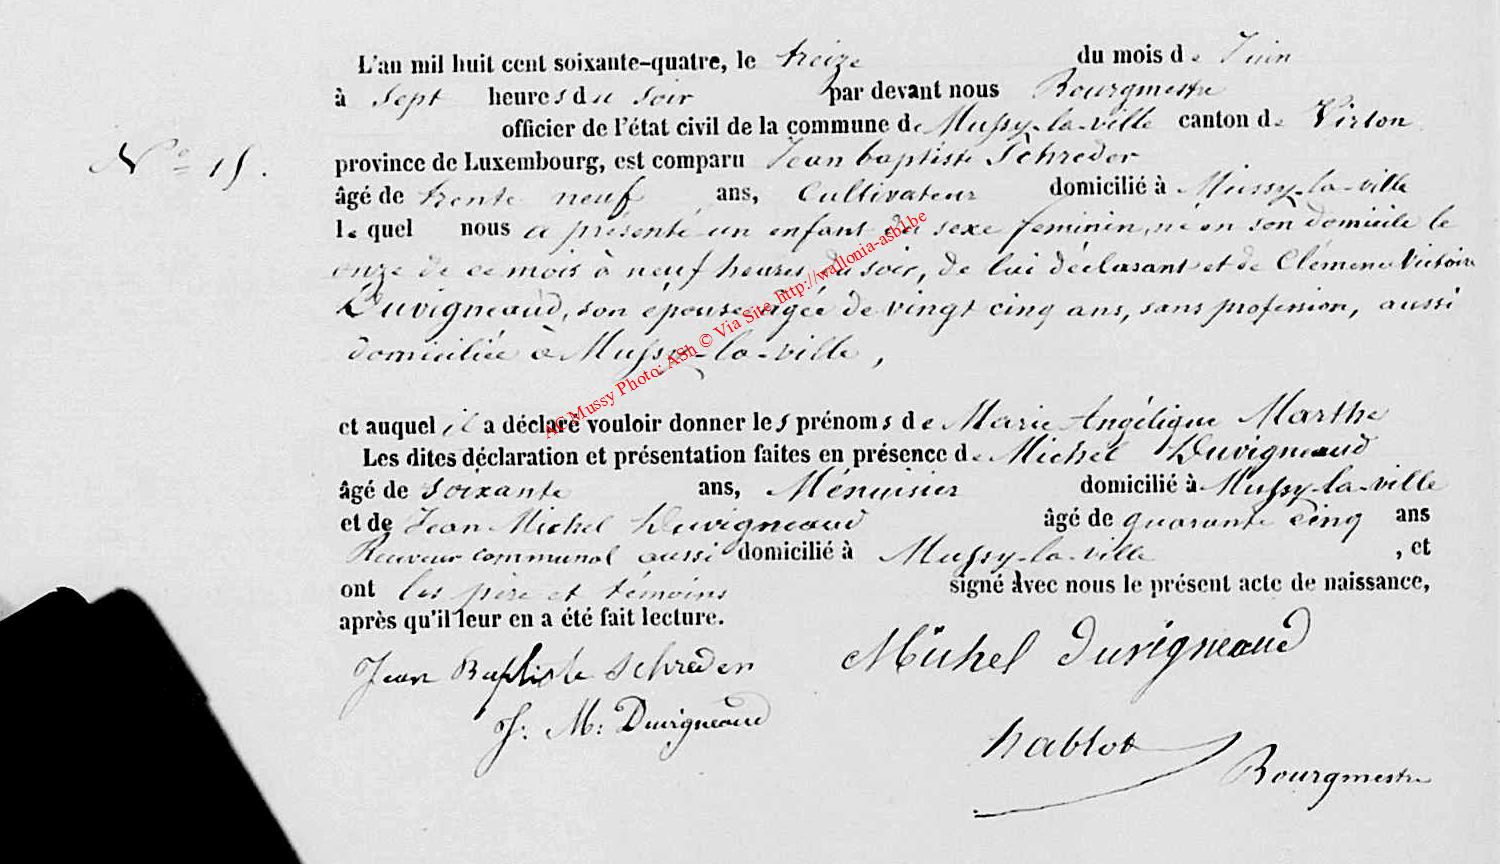 L'an mil huit cent soixante-quatre, le treize du mois de Juin
à sept heures du soir par devant nous Bourgmestre
officier de l'état civil de la commune de Mussy-la-ville canton de Virton
N° 15.
province de Luxembourg, est comparu Jean baptiste Schreder
âgé de trente neuf ans, Cultivateur domicilié à Mussy-la-ville
le quel nous a présenté un enfant du sexe féminin, né en son domicile le
onze de ce mois à neuf heures du soir, de lui déclarant et de Clémence Victoire
Duvigneaud, son épouse agée de vingt cinq ans, sans profession, aussi
domiciliée à Mussy-la-ville,
AC Mussy Photo: ASh © Via Site http://wallonia-asbl.be
et auquel il a déclaré vouloir donner les prénoms de Marie Angélique Marthe
Les dites déclaration et présentation faites en présence de Michel Duvigneaud
âgé de soixante ans, Ménuisier domicilié à Mussy-la-ville
et de Jean Michel Duvigneaud âgé de quarante cinq ans
Receveur communal aussi domicilié à Mussy-la-ville , et
ont les père et témoins signé avec nous le présent acte de naissance,
après qu'il leur en a été fait lecture.
Jean Baptiste Schreder Michel Duvigneaud
J: M: Duvigneaud
hablot
Bourgmestre